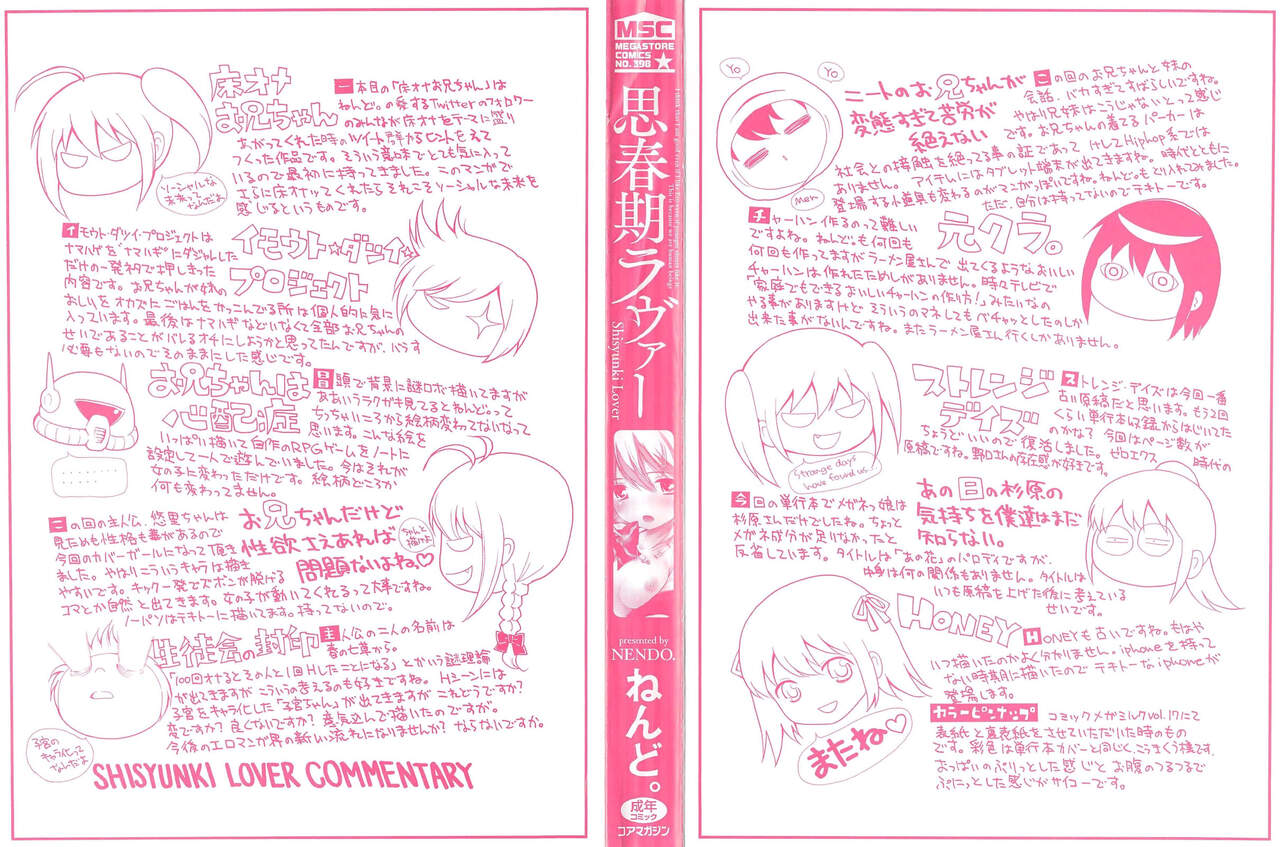 床オナ
お兄ちゃん
一本目の「床オナお兄ちゃん」は
ねんど。の愛するTwitterのフォロワー
のみんなが床オナをテーマに盛り
あがってくれた時のツイート群からヒントをえて
つくった作品です。そういう意味でとても気に入って
いるので最初に持ってきました。このマンガで
さらに床オナってくれたらそれこそソーシャルな未来を
感じるというものです。
ソーシャルな
未来って
なんだよ
イモウト☆ダツイ☆
プロジェクト
イモウト・ダツイ・プロジェクトは
ナマハゲを"ナマハギ"にダジャレした
だけの一発ネタで押しきった
内容です。お兄ちゃんが妹の
おしりをオカズにごはんをかっこんでる所は個人的に気に
入っています。最後はナマハギなどいなくて全部お兄ちゃんの
せいであることがバレるオチにしようかと思ってたんですが、バラす
必要もないのでそのままにした感じです。
お兄ちゃんは
心配症
冒頭で背景に謎ロボ描いてますが
ああいうラクガキ見てるとねんどって
ちっちゃいころから絵柄変わってないなって
思います。こんな絵を
いっぱい描いて自作のRPGゲームをノートに
設定して一人で遊んでいました。今はそれが
女の子に変わっただけです。絵柄どころか
何も変わってません。
お兄ちゃんだけど
性欲さえあれば
問題ないよね♡
この回の主人公、悠里ちゃんは
見ためも性格も毒があるので
今回のカバーガールになって頂き
ました。やはりこういうキャラは描き
やすいです。チャック一発でズボンが脱げる
コマとか自然と出てきます。女の子が動いてくれるって大事ですね。
ノーパソはテキトーに描いてます。持ってないので。
ちゃんと
描けよ
生徒会の封印
主人公の二人の名前は
春の七草から。
「100回オナるとその人と1回Hしたことになる」とかいう謎理論
が出てきますがこういうの考えるのも好きですね。Hシーンには
子宮をキャラ化した「子宮ちゃん」が出てきますがこれどうですか?
変ですか?良くないですか?意気込んで描いたのですが。
今後のエロマンガ界の新しい流れになりませんか?ならないですか。
子宮の
キャラ化って
なんだよ
SHISYUNKI LOVER COMMENTARY
MSC
MEGASTORE
COMICS
NO.398
思春期ラヴァー
Shisyunki Lover
presented by
NENDO.
ねんど。
成年
コミック
コアマガジン
Yo
Yo
Men
ニートのお兄ちゃんが
変態すぎて苦労が
絶えない
この回のお兄ちゃんと妹の
会話、バカすぎてすばらしいですね。
やはり兄妹はこうじゃないとって感じ
です。お兄ちゃんの着てるパーカーは
社会との接触を絶ってる事の証であって けしてHiphop系では
ありません。アイテムにはタブレット端末が出てきますね。時代とともに
登場する小道具も変わるのがマンガっぽいですね。ねんど。もとり入れてみました。
ただ、自分は持ってないのでテキトーです。
元クラ。
チャーハン作るのって難しい
ですよね。ねんど。も何回も
何回も作ってますがラーメン屋さんで出てくるようなおいしい
チャーハンは作れたためしがありません。時々テレビで
「家庭でもできるおいしいチャーハンの作り方!」みたいなの
やる事がありますけど そういうのマネしてもベチャッとしたのしか
出来た事がないんですね。またラーメン屋さん行くしかありません。
ストレンジ
デイズ
ストレンジ・デイズは今回一番
古い原稿だと思います。もう2回
くらい単行本収録からはじいてた
のかな?今回はページ数が
ちょうどいいので復活しました。ゼロエクス時代の
原稿ですね。野口さんの存在感が好きです。
Strange days
have found us...
あの日の杉原の
気持ちを僕達はまだ
知らない。
今回の単行本でメガネっ娘は
杉原さんだけでしたね。ちょっと
メガネ成分が足りなかったと
反省しています。タイトルは「あの花」のパロディですが、
中身は何の関係もありません。タイトルは
いつも原稿を上げた後に考えている
せいです。
HONEY
HONEYも古いですね。もはや
いつ描いたのかよく分かりません。iphoneを持って
ない時期に描いたのでテキトーなiphoneが
登場します。
またね♡
カラーピンナップ
コミックメガミルクvol.17にて
表紙と裏表紙をさせていただいた時のもの
です。彩色は単行本カバーと同じく、こうきくう様です。
おっぱいのぷりっとした感じとお腹のつるつるで
ぷにっとした感じがサイコーです。